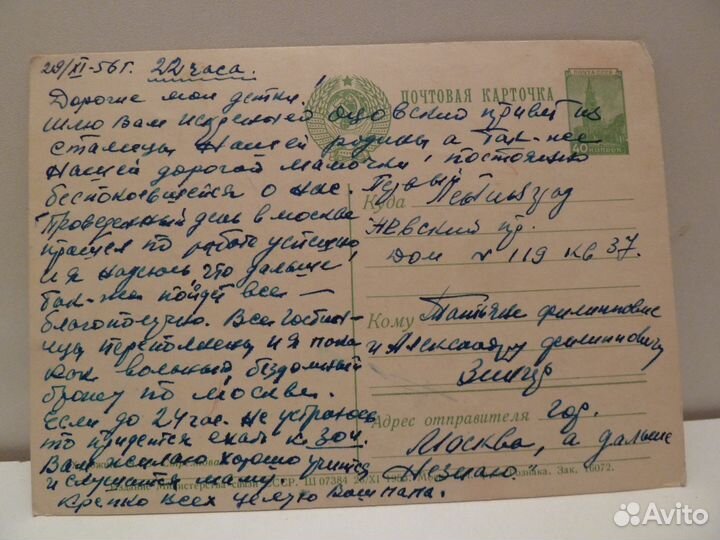 29/XI-56 г. 22 часа.
Дорогие мои детки!
ПОЧТОВАЯ КАРТОЧКА
ПОЧТА СССР
40 КОПЕЕК
Шлю Вам искренний отцовский привет из
сталицы Нашей родины а так-же
Нашей дорогой мамочки, постоянно
беспокоившейся о нас.
Проведенный день в москве
прошел по работе успешно
и я надеюсь, что дальше
так-же пойдет все —
благополучно. Все гостин-
ицы переполнены и я пока
как вольный бездомный
брожу по Москве.
Если до 24 час. не устроюсь
то придется ехать к Зои.
Вам желаю хорошо учится
и слушатся маму.
Крепко всех целую Ваш папа.
Куда Ленинград
Невский пр.
дом № 119 кв 37.
Кому Татьяне Филипповне
и Александру Филипповичу
Адрес отправителя гор.
Москва, а дальше
"Незнаю"
Издание Министерства связи СССР. Ш 07384 Зак. 16072.
Avito